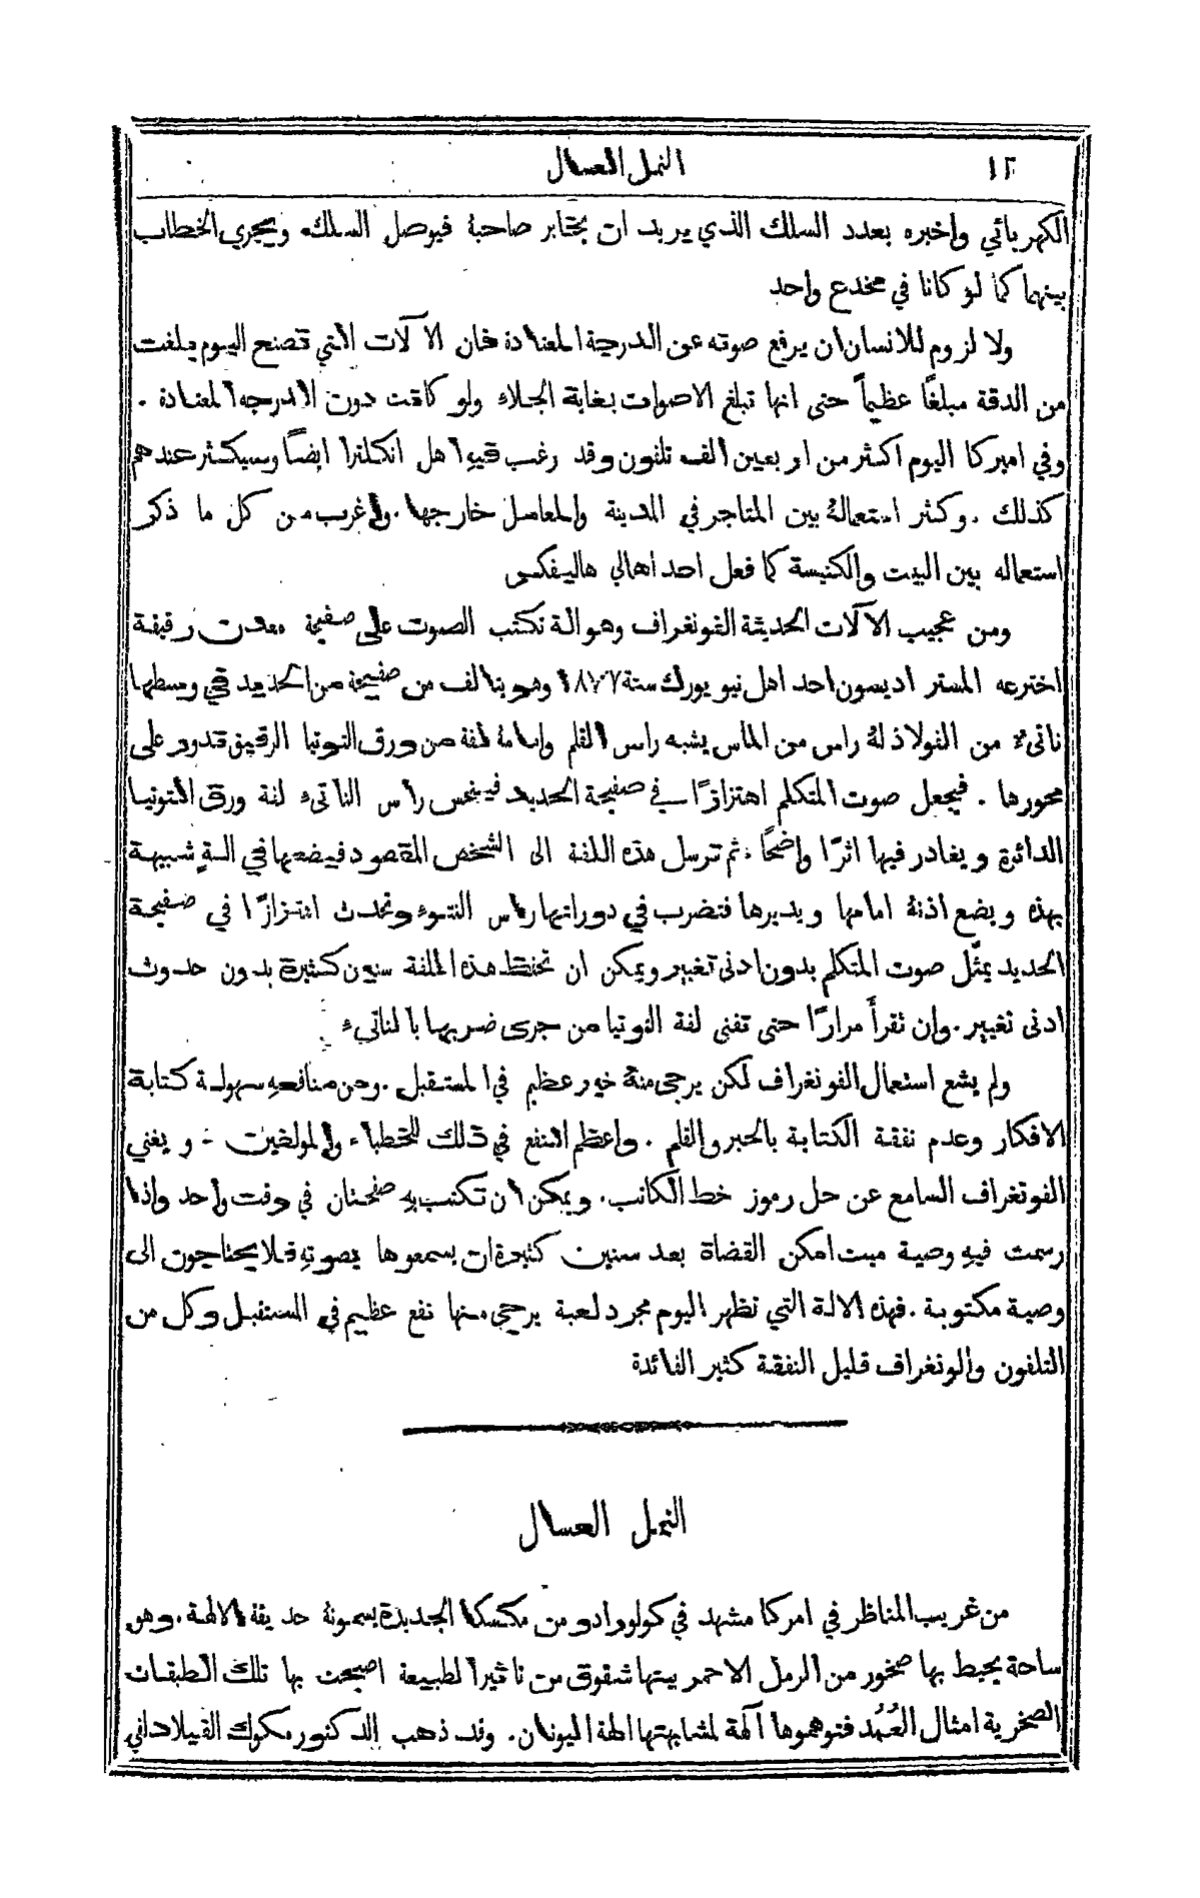 ١٢ النمل العسال
الكهربائي واخبره بعدد السلك الذي يريد ان يخابر صاحبهُ فيوصل السلك ويجري الخطاب
بينهما كما لو كانا في مخدع واحد
ولا لزوم للانسان ان يرفع صوته عن الدرجة المعتادة فان الآلات التي تصنع اليوم بلغت
من الدقة مبلغًا عظيمًا حتى انها تبلغ الاصوات بغاية الجلاء ولو كانت دون الدرجه المعتادة .
وفي اميركا اليوم اكثر من اربعين الف تلفون وقد رغب فيهِ اهل انكلترا ايضًا وسيكثر عندهم
كذلك . وكثر استعمالهُ بين المتاجر في المدينة والمعامل خارجها . واغرب من كل ما ذكر
استعماله بين البيت والكنيسة كما فعل احد اهالي هاليفكس
ومن عجيب الآلات الحديثة الفونغراف وهو الة تكتب الصوت على صفيحة معدن رقيقة
اخترعه المستر اديسون احد اهل نيو يورك سنة ١٨٧٧ وهو يتالف من صفيحة من الحديد في وسطها
ناتىء من الفولاذ لهُ راس من الماس يشبه راس القلم وامامهُ لفة من ورق التوتيا الرقيق تدور على
محورها . فيجعل صوت المتكلم اهتزازًا في صفيحة الحديد فينخس راس الناتىء لفة ورق التوتيا
الدائرة ويغادر فيها اثرًا واضحًا . ثم ترسل هذه اللفة الى الشخص المقصود فيضعها في الةٍ شبيهة
بهذه ويضع اذنهُ امامها ويديرها فتضرب في دورانها راس النتوء وتحدث اهتزازًا في صفيحة
الحديد يمثّل صوت المتكلم بدون ادنى تغيير ويمكن ان تحفظ هذه اللفة سنين كثيرة بدون حدوث
ادنى تغيير . وان تقرأَ مرارًا حتى تفنى لفة التوتيا من جرى ضربها بالناتىء
ولم يشع استعمال الفونغراف لكن يرجى منهُ خير عظيم في المستقبل . ومن منافعهِ سهولة كتابة
الافكار وعدم نفقة الكتابة بالحبر والقلم . واعظم النفع في ذلك للخطباء والمولفين . ويغني
الفونغراف السامع عن حل رموز خط الكاتب . ويمكن ان تكتب بهِ صفحتان في وقت واحد واذا
رسمت فيهِ وصية ميت امكن القضاة بعد سنين كثيرة ان يسمعوها بصوتهِ فلا يحتاجون الى
وصية مكتوبة . فهذه الالة التي تظهر اليوم مجرد لعبة يرجى منها نفع عظيم في المستقبل وكل من
التلفون والونغراف قليل النفقة كثير الفائدة
النمل العسال
من غريب المناظر في امركا مشهد في كولورادو من مكسكا الجديدة يسمونهُ حديقة الالهة . وهو
ساحة يحيط بها صخور من الرمل الاحمر بينها شقوق من تاثير الطبيعة اصبحت بها تلك الطبقات
الصخرية امثال العُمُد فتوهموها آلهة لمشابهتها الهة اليونان . وقد ذهب الدكتور مكوك الفيلادلفي